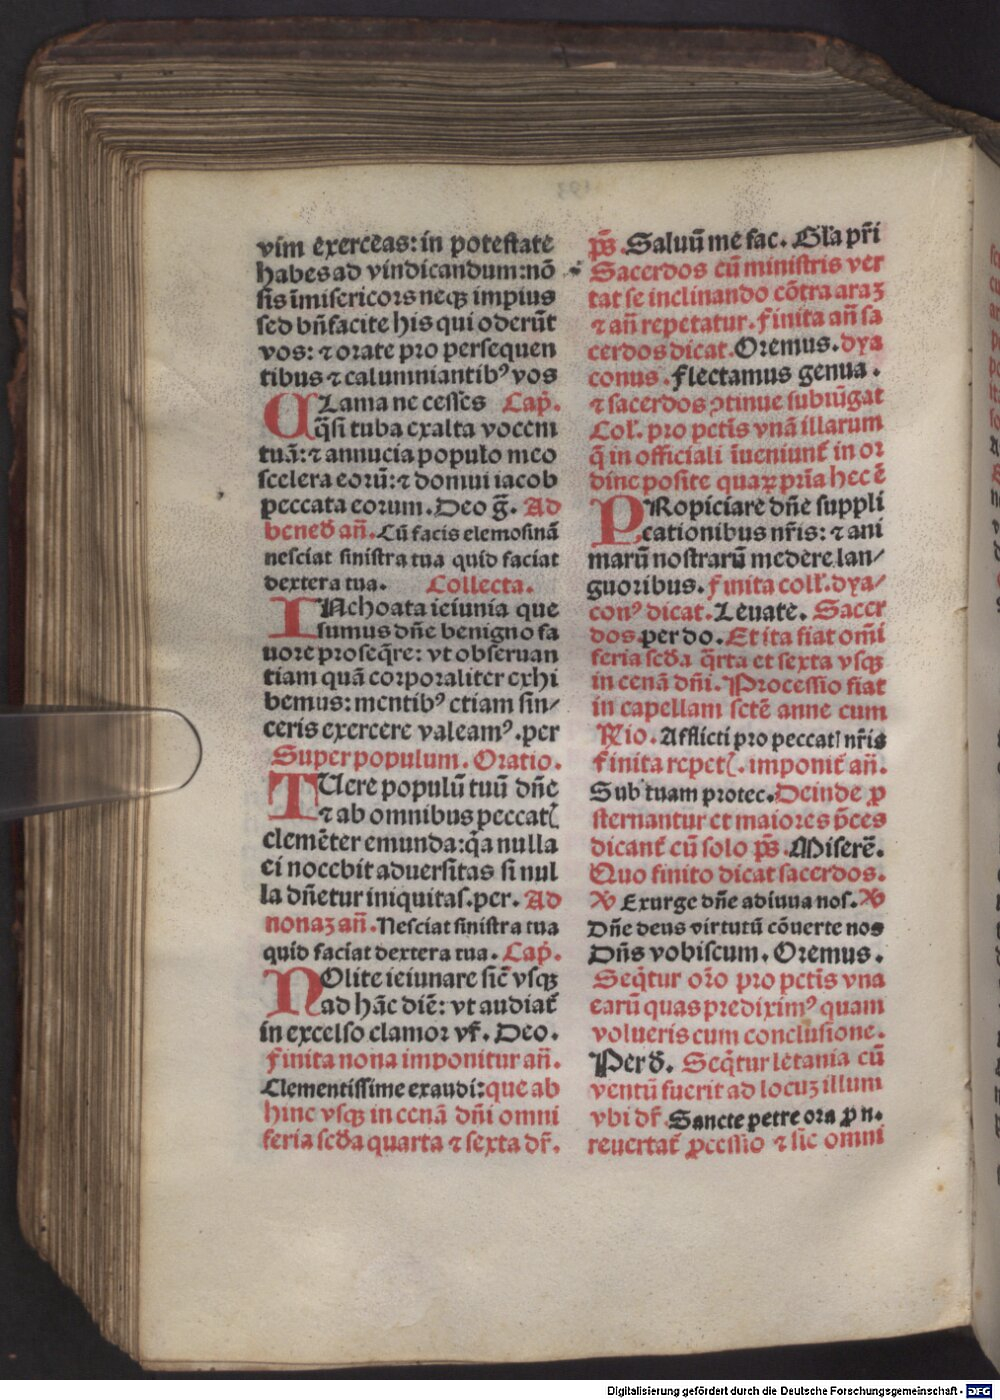 vim exerceas: in potestate
habes ad vindicandum: nō
sis īmisericors neqꝫ impius
sed bn̄facite his qui oderūt
vos: ⁊ orate pro persequen
tibus ⁊ calumniantibꝰ vos
CLama ne cesses Cap̄.
q̄si tuba exalta vocem
tuā: ⁊ annucia populo meo
scelera eorū: ⁊ domui iacob
peccata eorum. Deo g̅. Ad
bened̄ an̄. Cū facis elemosinā
nesciat sinistra tua quid faciat
dextera tua. Collecta.
INchoata ieiunia que
sumus dn̄e benigno fa
uore proseq̄re: vt obseruan
tiam quā corporaliter exhi
bemus: mentibꝰ etiam sin⸗
ceris exercere valeamꝰ. per
Super populum. Oratio.
TUere populū tuū dn̄e
⁊ ab omnibus peccatꝭ
clemēter emunda: q̄a nulla
ei nocebit aduersitas si nul
la dn̄etur iniquitas. per. Ad
nonaꝫ an̄. Nesciat sinistra tua
quid faciat dextera tua. Cap̄.
NOlite ieiunare sic̄ vsqꝫ
ad hāc diē: vt audiat̄
in excelso clamor vr̄. Deo.
Finita nona imponitur an̄.
Clementissime exaudi: que ab
hinc vsqꝫ in cenā dn̄i omni
feria scd̄a quarta ⁊ sexta dr̄.
ps̄. Saluū me fac. Gl̄a pr̄i
Sacerdos cū ministris ver
tat se inclinando cōtra araꝫ
⁊ an̄ repetatur. Finita an̄ sa
cerdos dicat. Oremus. dya
conus. Flectamus genua.
⁊ sacerdos ꝯtinue subiūgat
Col̄. pro pctīs vnā illarum
q̄ in officiali īueniunt̄ in or
dine posite quaꝝ pr̄ia hec ē
PRopiciare dn̄e suppli
cationibus nr̄is: ⁊ ani
marū nostrarū medere lan⸗
guoribus. Finita coll̄. dya⸗
conꝰ dicat. Leuate. Sacer
dos. per do. Et ita fiat om̄i
feria scd̄a q̄rta et sexta vsqꝫ
in cenā dn̄i. Processio fiat
in capellam sctē anne cum
℟io. Afflicti pro peccatꝭ nr̄is
Finita repetꝭ. imponit̄ an̄.
Sub tuam protec. Deinde ꝓ
sternantur et maiores p̄ces
dicant̄ cū solo ps̄. Miserē.
Quo finito dicat sacerdos.
℣ Exurge dn̄e adiuua nos. ℣
Dn̄e deus virtutū cōuerte nos
Dn̄s vobiscum. Oremus.
Seq̄tur or̄o pro pctīs vna
earū quas prediximꝰ quam
volueris cum conclusione.
Per d̄. Seq̄tur letania cū
ventū fuerit ad locuꝫ illum
vbi dr̄. Sancte petre ora ꝓ n.
reuertat̄ ꝓcessio ⁊ sic omni
Digitalisierung gefördert durch die Deutsche Forschungsgemeinschaft - DFG